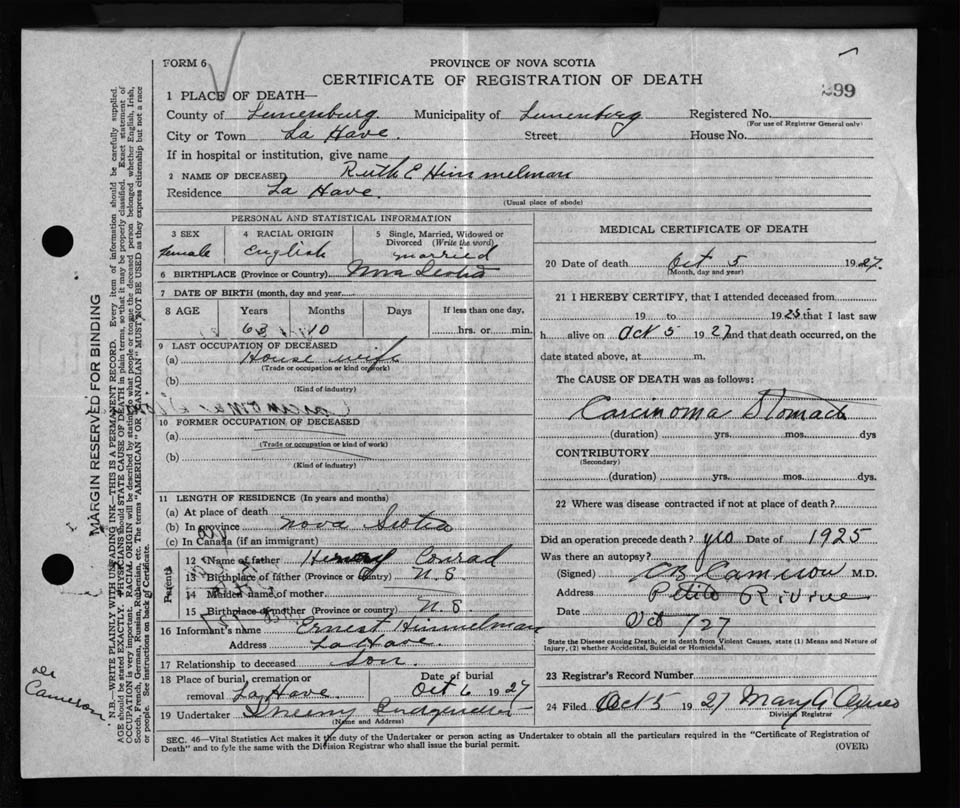 FORM 6
PROVINCE OF NOVA SCOTIA
CERTIFICATE OF REGISTRATION OF DEATH
299
1 PLACE OF DEATH—
County of Lunenburg Municipality of Lunenberg Registered No.
(For use of Registrar General only)
City or Town La Have. Street House No.
If in hospital or institution, give name
2 NAME OF DECEASED Ruth E Himmelman
Residence La Have.
(Usual place of abode)
PERSONAL AND STATISTICAL INFORMATION
3 SEX female
4 RACIAL ORIGIN English
5 Single, Married, Widowed or Divorced (Write the word) married
6 BIRTHPLACE (Province or Country) Nova Scotia
7 DATE OF BIRTH (month, day and year)
8 AGE Years Months Days If less than one day,
63 10 hrs. or min.
9 LAST OCCUPATION OF DECEASED
(a) House wife
(Trade or occupation or kind of work)
(b)
(Kind of industry)
10 FORMER OCCUPATION OF DECEASED
(a)
(Trade or occupation or kind of work)
(b)
(Kind of industry)
11 LENGTH OF RESIDENCE (In years and months)
(a) At place of death
(b) In province Nova Scotia
(c) In Canada (if an immigrant)
Parents
12 Name of father Conrad
13 Birthplace of father (Province or Country) N.S
14 Maiden name of mother
15 Birthplace of mother (Province or country) N.S
16 Informant's name Ernest Himmelman
Address La Have
17 Relationship to deceased Son.
18 Place of burial, cremation or removal La Have. Date of burial Oct 6 1927
19 Undertaker
(Name and Address)
MEDICAL CERTIFICATE OF DEATH
20 Date of death Oct 5 1927
(Month, day and year)
21 I HEREBY CERTIFY, that I attended deceased from
19 to 1925 that I last saw
h alive on Oct 5 1927 and that death occurred, on the
date stated above, at m.
The CAUSE OF DEATH was as follows:
Carcinoma Stomach
(duration) yrs. mos. dys
CONTRIBUTORY
(Secondary)
(duration) yrs. mos. dys.
22 Where was disease contracted if not at place of death?
Did an operation precede death? yes Date of 1925
Was there an autopsy?
(Signed) M.D.
Address Petite Riviere
Date Oct /27
State the Disease causing Death, or in death from Violent Causes, state (1) Means and Nature of
Injury, (2) whether Accidental, Suicidal or Homicidal.
23 Registrar's Record Number
24 Filed Oct 5 1927 Mary
Division Registrar
SEC. 46—Vital Statistics Act makes it the duty of the Undertaker or person acting as Undertaker to obtain all the particulars required in the "Certificate of Registration of
Death" and to fyle the same with the Division Registrar who shall issue the burial permit.
(OVER)
MARGIN RESERVED FOR BINDING
N.B.—WRITE PLAINLY WITH UNFADING INK—THIS IS A PERMANENT RECORD. Every item of information should be carefully supplied.
AGE should be stated EXACTLY. PHYSICIANS should STATE CAUSE OF DEATH in plain terms, so that it may be properly classified. Exact statement of
OCCUPATION is very important. RACIAL ORIGIN will be described by stating to what people or tongue the deceased person belonged whether English, Irish,
Scotch, French, German, Russian, Ruthenian, etc. The terms "AMERICAN" OR "CANADIAN" MUST NOT BE USED as they express citizenship but not a race
or people. See instructions on back of Certificate.
Cameron